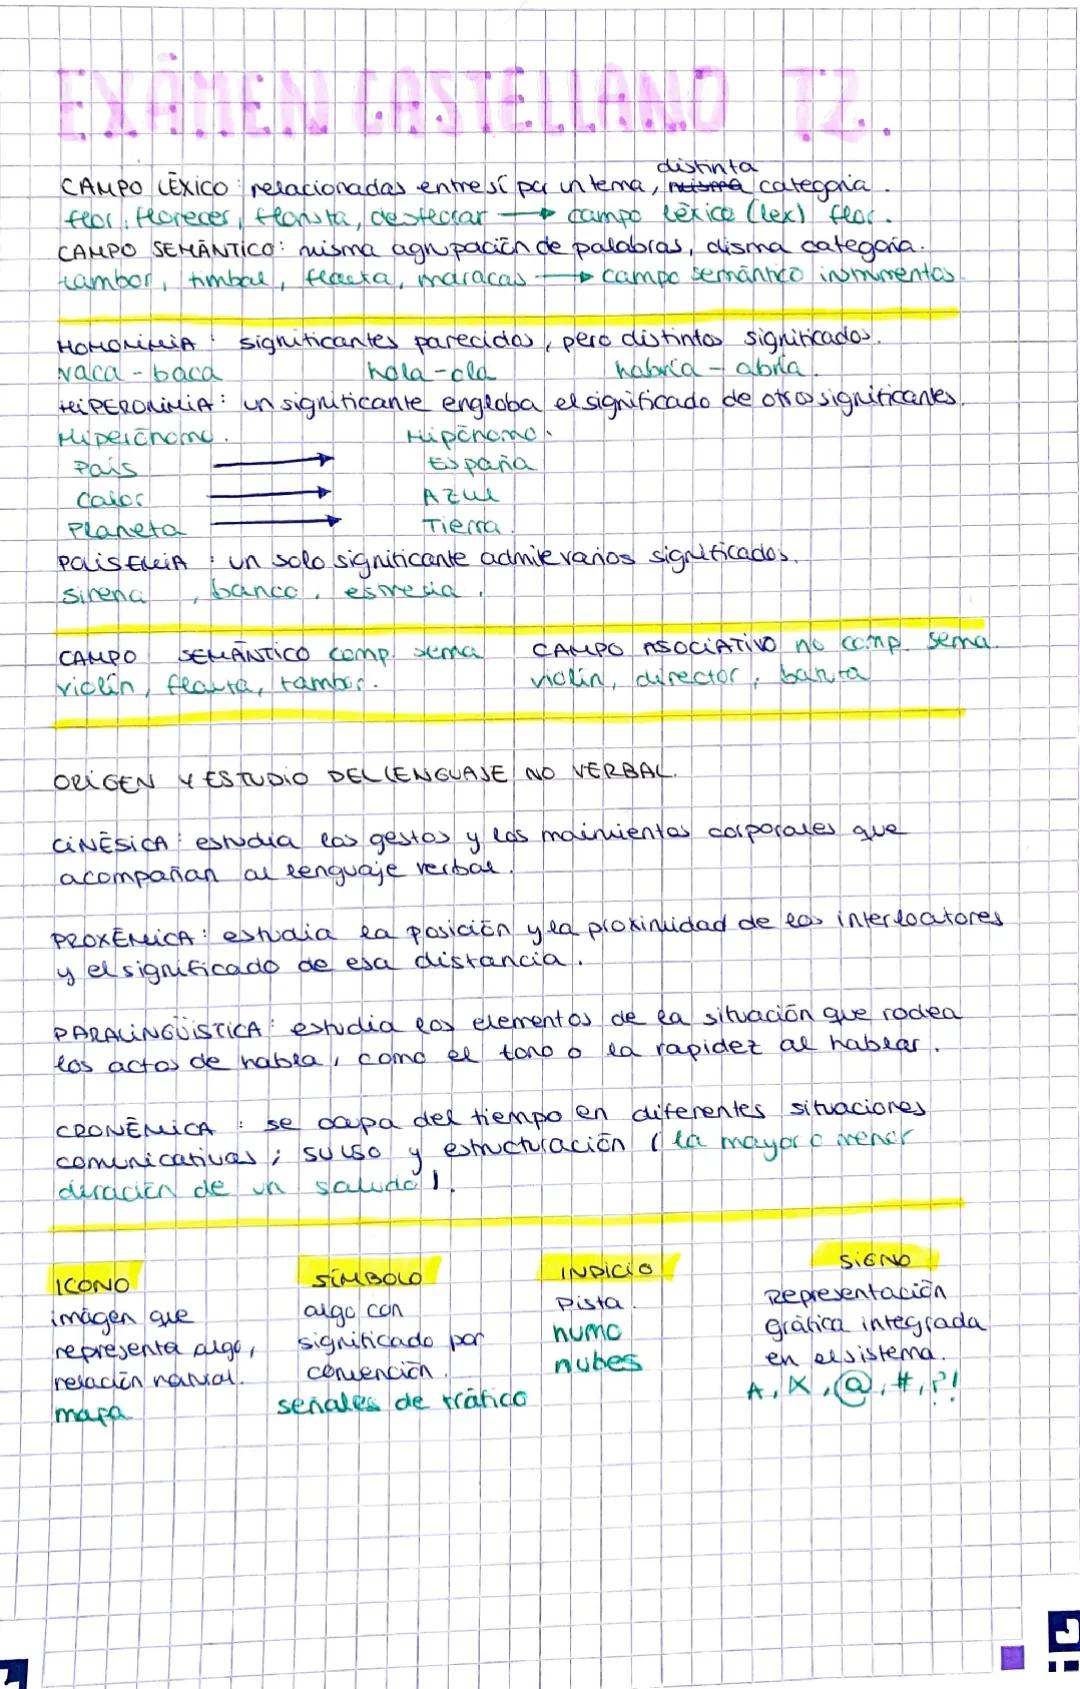 EXÁMEN CASTELLANO T2.
distinta
CAMPO LÉXICO: relacionadas entre sí por un tema, misma categoria.
flor, florecer, florista, desflorar → campo léxico (lex) flor.
CAMPO SEMÁNTICO: misma agrupación de palabras, disma categoría.
tambor, timbal, flauta, maracas → campo semántico instrumentos.
HOMONIMIA: significantes parecidos, pero distintos significados.
vaca - baca hola - ola habría - abría.
HIPERONIMIA: un significante engloba el significado de otros significantes.
Hiperónomo. Hipónomo.
País → España
Color → Azul
Planeta → Tierra.
POLISEMIA: un solo significante admite varios significados.
sirena, banco, estrella.
CAMPO SEMÁNTICO comp. sema CAMPO ASOCIATIVO no comp. sema.
violín, flauta, tambor. violín, director, batuta
ORIGEN Y ESTUDIO DEL LENGUAJE NO VERBAL.
CINÉSICA: estudia los gestos y los movimientos corporales que
acompañan al lenguaje verbal.
PROXÉMICA: estudia la posición y la proximidad de los interlocutores
y el significado de esa distancia.
PARALINGÜISTICA: estudia los elementos de la situación que rodea
los actos de habla, como el tono o la rapidez al hablar.
CRONÉMICA: se ocupa del tiempo en diferentes situaciones
comunicativas; su uso y estructuración (la mayor o menor
duración de un saludo).
ICONO SÍMBOLO INDICIO SIGNO
imágen que algo con Pista. Representación
representa algo, significado por humo gráfica integrada
relación natural. convención. nubes en el sistema.
mapa señales de tráfico A, X, @, #, ?!